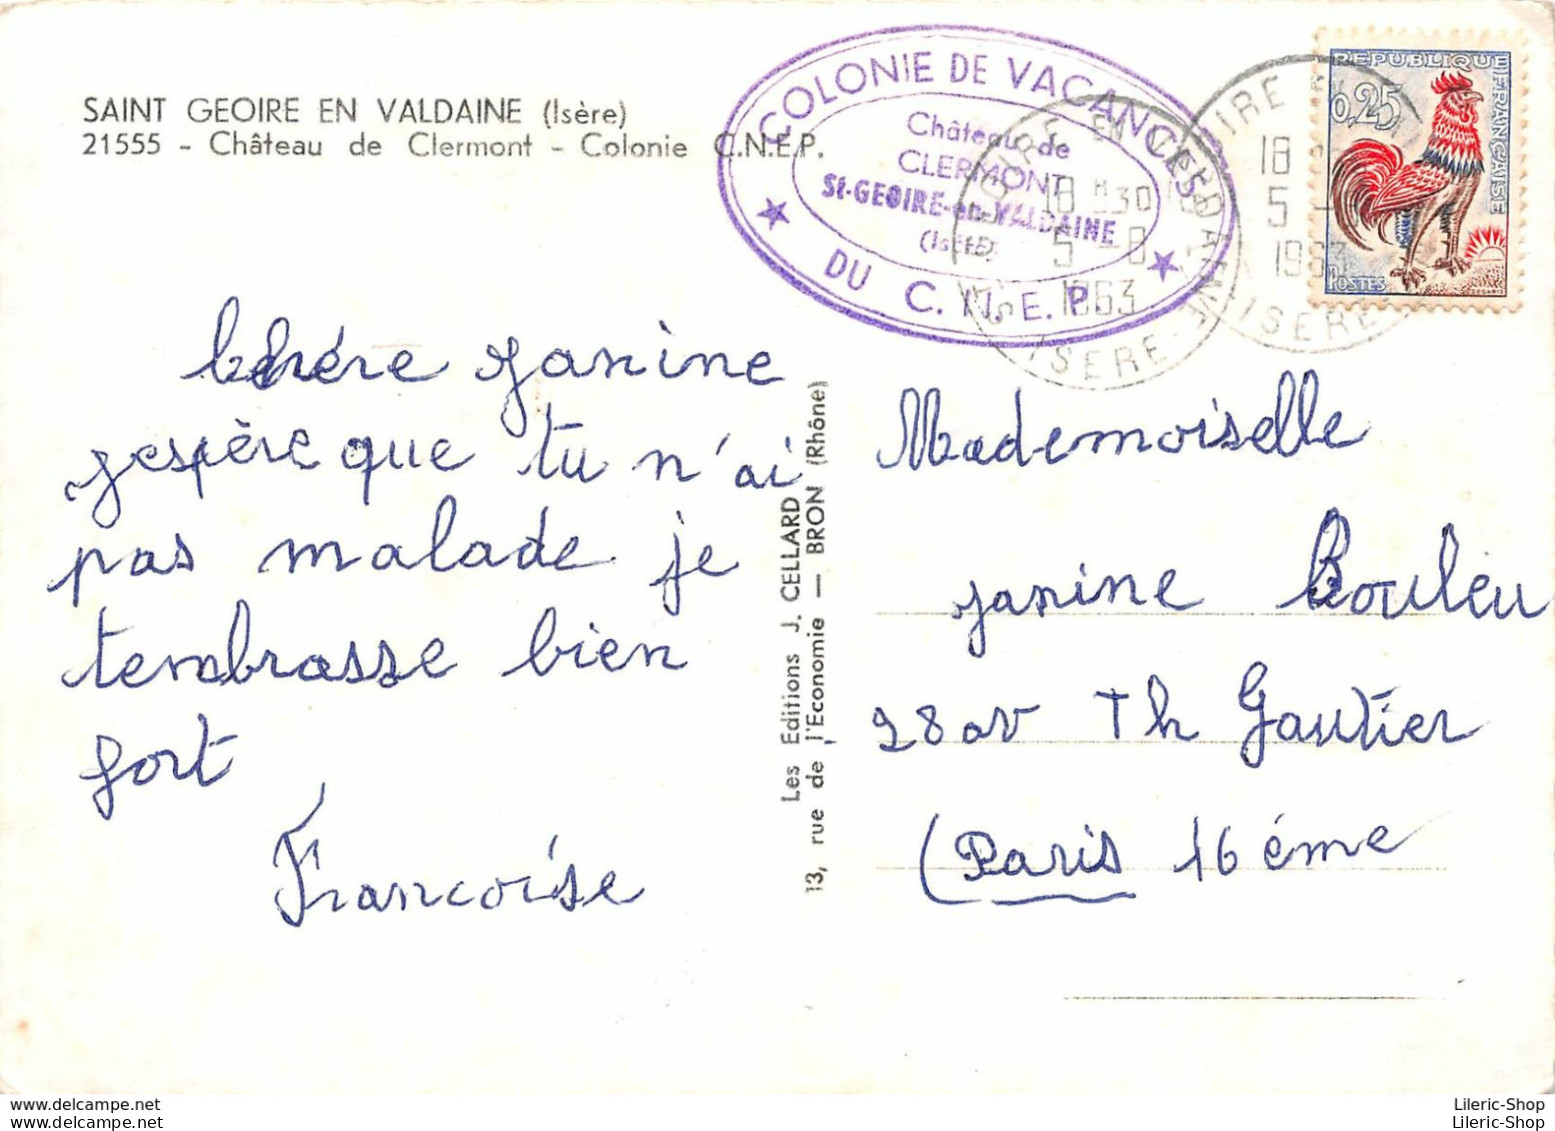 SAINT GEOIRE EN VALDAINE (Isère)
21555 - Château de Clermont - Colonie C.N.E.P.
COLONIE DE VACANCES
Château de
CLERMONT
St-GEOIRE-en-VALDAINE
(Isère)
DU C.N.E.P.
18 H 30
5 - 8
1963
ISERE
18
5 -
1963
ISERE
REPUBLIQUE FRANÇAISE
0,25
POSTES
chére janine
jespère que tu n'ai
pas malade je
tembrasse bien
fort
Francoise
Les Editions J. CELLARD
13, rue de l'Economie — BRON (Rhône)
Mademoiselle
janine Bouleu
28 av Th Gautier
(Paris 16 éme
Lileric-Shop
Lileric-Shop
Lileric-Shop
Lileric-Shop